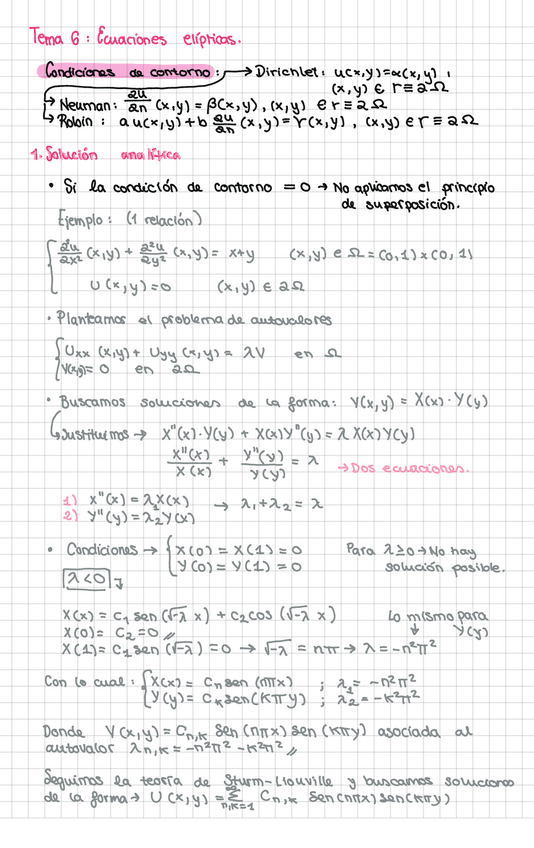 Tema 6: Ecuaciones elípticas.
Condiciones de contorno: → Dirichlet: u(x,y)=α(x,y),
(x,y) ∈ Γ ≡ ∂Ω
↳ Neuman: ∂u/∂n (x,y) = β(x,y), (x,y) ∈ Γ ≡ ∂Ω
↳ Robin: a u(x,y) + b ∂u/∂n (x,y) = γ(x,y), (x,y) ∈ Γ ≡ ∂Ω
1. Solución analítica
• Si la condición de contorno = 0 → No aplicamos el principio
de superposición.
Ejemplo: (1 relación)
∂²u/∂x² (x,y) + ∂²u/∂y² (x,y) = x+y (x,y) ∈ Ω = (0,1) x (0,1)
U(x,y) = 0 (x,y) ∈ ∂Ω
• Planteamos el problema de autovalores
Uxx (x,y) + Uyy (x,y) = λV en Ω
V(x,y) = 0 en ∂Ω
• Buscamos soluciones de la forma: V(x,y) = X(x) · Y(y)
↳ Sustituimos → X''(x)·Y(y) + X(x)Y''(y) = λ X(x)Y(y)
X''(x)/X(x) + Y''(y)/Y(y) = λ → Dos ecuaciones.
1) X''(x) = λ₁X(x) → λ₁+λ₂ = λ
2) Y''(y) = λ₂Y(x)
• Condiciones → X(0) = X(1) = 0 Para λ≥0 → No hay
Y(0) = Y(1) = 0 solución posible.
λ<0
X(x) = C₁ sen (√-λ x) + C₂cos (√-λ x) Lo mismo para
X(0) = C₂ = 0 // Y(y)
X(1) = C₁ sen (√-λ) = 0 → √-λ = nπ → λ = -n²π²
Con lo cual: X(x) = Cn sen (nπx) ; λ₁ = -n²π²
Y(y) = Cк sen (Kπy) ; λ₂ = -K²π²
Donde V(x,y) = Cn,k Sen (nπx) sen (Kπy) asociada al
autovalor λn,k = -n²π² - K²π² //
Seguimos la teoría de Sturm-Liouville y buscamos soluciones
de la forma → U(x,y) = ∞Σn,k=1 Cn,k Sen(nπx) sen(Kπy)